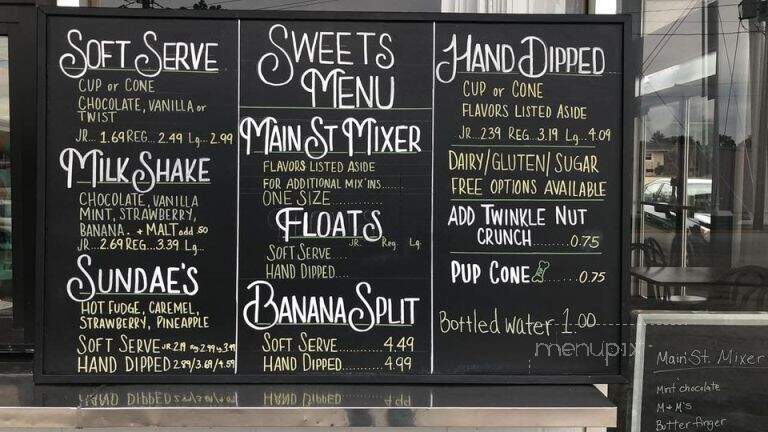 SOFT SERVE
CUP or CONE
CHOCOLATE, VANILLA or
TWIST
JR... 1.69 REG... 2.49 Lg... 2.99
MILK SHAKE
CHOCOLATE, VANILLA
MINT, STRAWBERRY,
BANANA. + MALT add .50
JR... 2.69 REG... 3.39 Lg...
SUNDAE'S
HOT FUDGE, CAREMEL,
STRAWBERRY, PINEAPPLE
SOFT SERVE JR 2.19 Reg 2.99 Lg 3.49
HAND DIPPED 2.89/3.69/4.59
SWEETS
MENU
MAIN ST MIXER
FLAVORS LISTED ASIDE
FOR ADDITIONAL MIX'INS......
ONE SIZE............
FLOATS
JR. Reg. Lg.
SOFT SERVE....
HAND DIPPED....
BANANA SPLIT
SOFT SERVE............4.49
HAND DIPPED...........4.99
HAND DIPPED
CUP or CONE
FLAVORS LISTED ASIDE
JR... 2.39 REG... 3.19 Lg... 4.09
DAIRY/GLUTEN/SUGAR
FREE OPTIONS AVAILABLE
ADD TWINKLE NUT
CRUNCH.........0.75
PUP CONE.......0.75
Bottled water 1.00
menupix
Main St. Mixer
Mint chocolate
M & M's
Butter finger